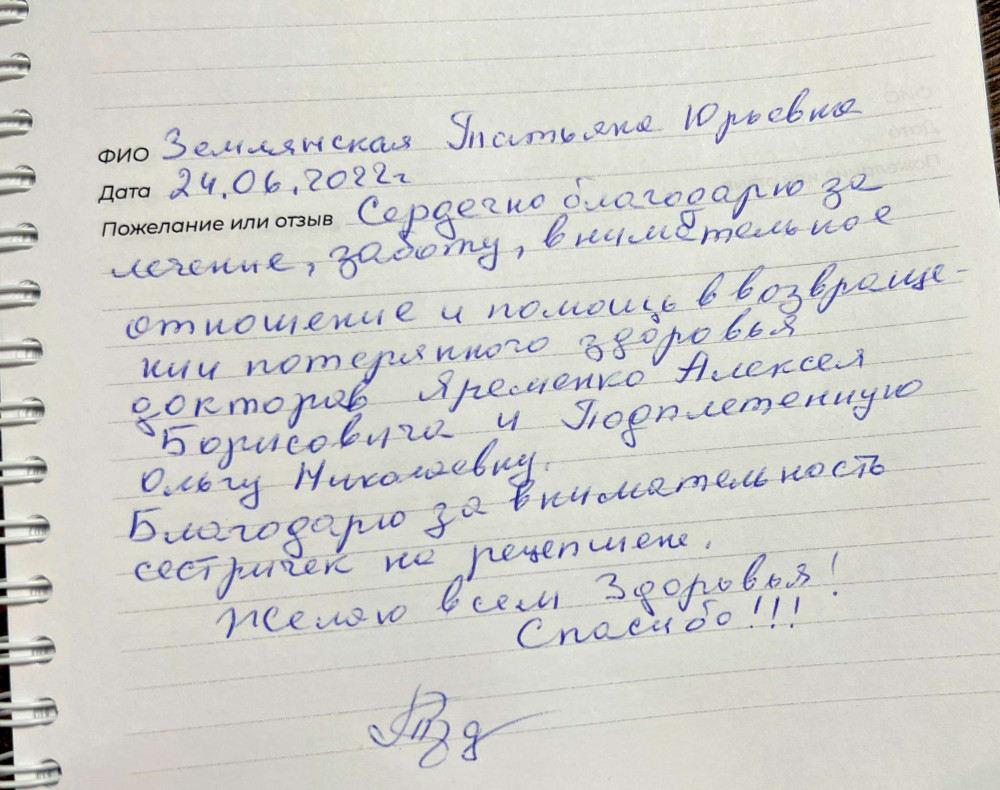 ФИО Землянская Татьяна Юрьевна
Дата 24.06.2022г
Пожелание или отзыв Сердечно благодарю за
лечение, заботу, внимательное
отношение и помощь в возвраще-
нии потерянного здоровья
докторов Яременко Алексея
Борисовича и Подплетенную
Ольгу Николаевну.
Благодарю за внимательность
сестричек на рецепшене.
Желаю всем Здоровья!
Спасибо!!!